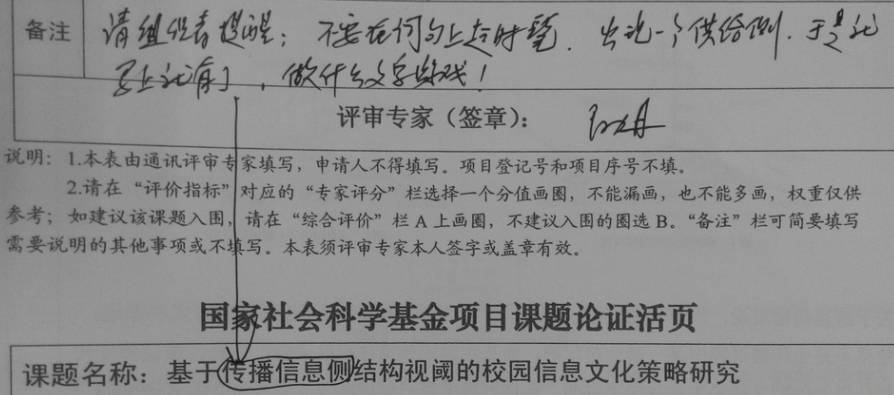 备注 请组织者提醒：不要在何句上赶时髦，出现一个供给侧，于是说
马上就有了，做什么文字游戏！
评审专家（签章）：
说明：1.本表由通讯评审专家填写，申请人不得填写。项目登记号和项目序号不填。
2.请在“评价指标”对应的“专家评分”栏选择一个分值画圈，不能漏画，也不能多画，权重仅供
参考；如建议该课题入围，请在“综合评价”栏 A 上画圈，不建议入围的圈选 B。“备注”栏可简要填写
需要说明的其他事项或不填写。本表须评审专家本人签字或盖章有效。
国家社会科学基金项目课题论证活页
课题名称：基于传播信息侧结构视阈的校园信息文化策略研究